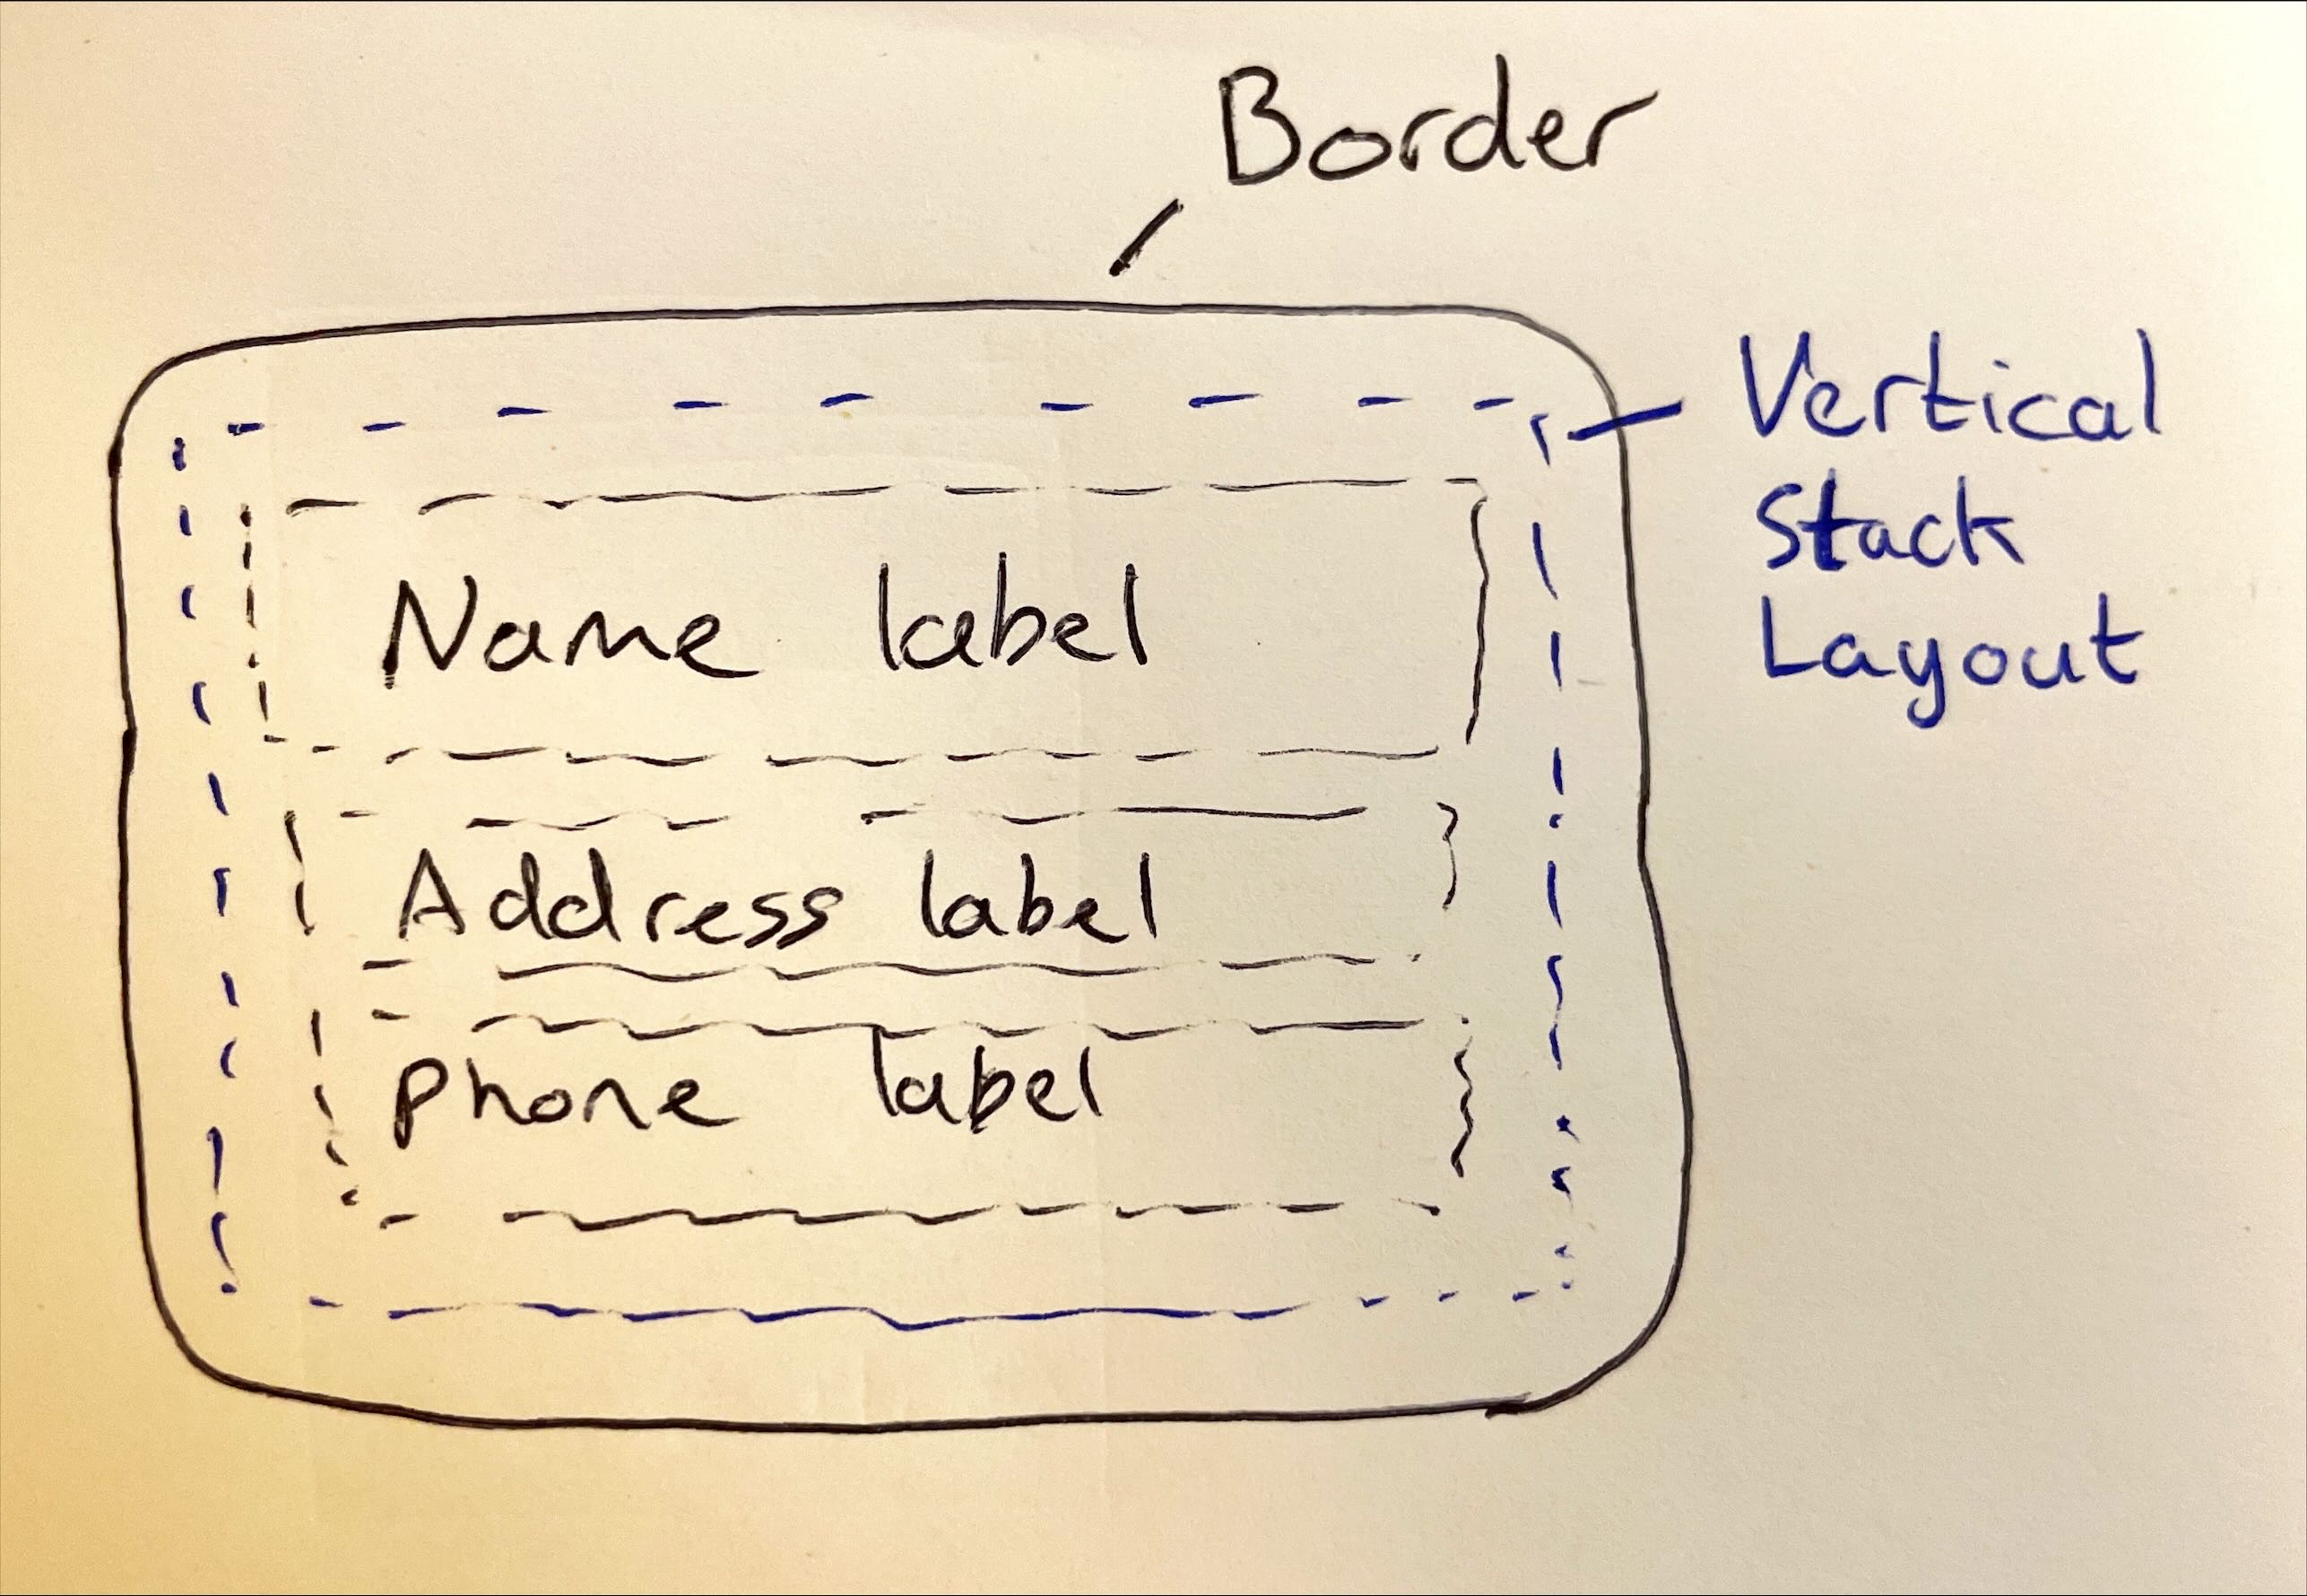 Border
Vertical
Stack
Layout
Name label
Address label
Phone label